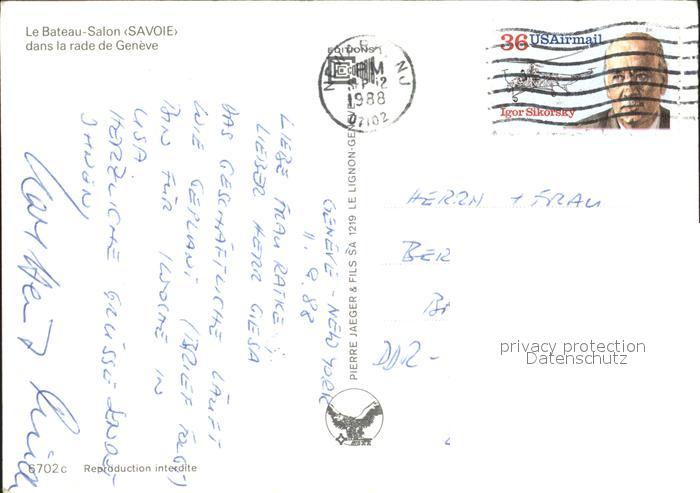 Le Bateau-Salon ‹SAVOIE›
dans la rade de Genève
EDITIONS
NJ
PM
12
1988
07102
36 USAirmail
Igor Sikorsky
GENÈVE - NEW YORK
11. 9. 88
LIEBE FRAU RATKE
LIEBER HERR GIESA
DAS GESCHÄFTLICHE LÄUFT
WIE GEPLANT (BRIEF FOLGT)
BIN FÜR 1 WOCHE IN
USA.
HERZLICHE GRÜSSE SENDET
IHNEN
PIERRE JAEGER & FILS SA 1219 LE LIGNON-GENÈVE
HERRN + FRAU
BER
DDR-
privacy protection
Datenschutz
6702 c Reproduction interdite